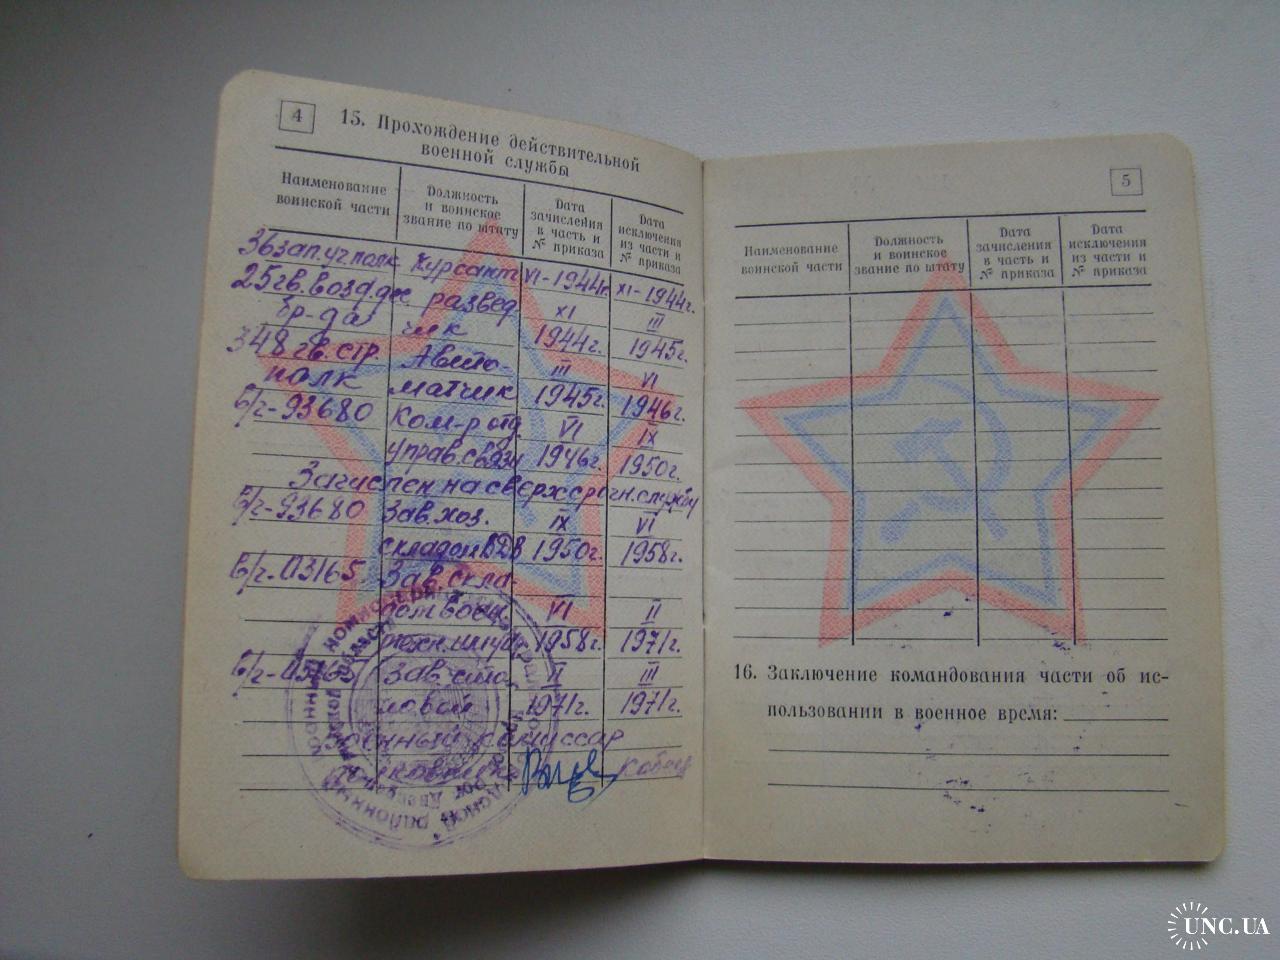 4
15. Прохождение действительной
военной службы
Наименование
воинской части
Должность
и воинское
звание по штату
Дата
зачисления
в часть и
№ приказа
Дата
исключения
из части и
№ приказа
36 зап. уч полк Курсант VI-1944г. XI-1944г.
25 гв. возд. дес развед XI III
бр-да чик 1944г. 1945г.
348 гв. стр. Авто- III VI
полк матчик 1945г. 1946г.
В/ч-93680 Ком-р отд VI IX
управ. связи 1946г. 1950г.
Зачислен на сверхсрочн. службу
В/ч-93680 Зав. хоз. IX VI
складом ВДВ 1950г. 1958г.
В/ч-03165 Зав. скла-
дом VI II
1958г. 1971г.
В/ч-03165 Зав. сто- II III
ловой 1971г. 1971г.
Военный комиссар
полковник
5
Наименование
воинской части
Должность
и воинское
звание по штату
Дата
зачисления
в часть и
№ приказа
Дата
исключения
из части и
№ приказа
16. Заключение командования части об ис-
пользовании в военное время:
UNC.UA